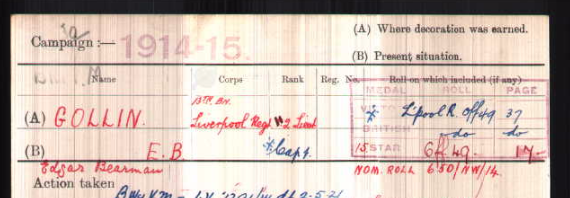 (A) Where decoration was earned.
Campaign :— 1914-15.
(B) Present situation.
Name Corps Rank Reg. No. Roll on which included (if any)
MEDAL ROLL PAGE
13TH. BN.
(A) GOLLIN. Liverpool Regt 2 Lieut
VICTORY * L'pool R. Off 49 37
BRITISH do do
(B) E.B. * Capt.
15 STAR 49
Edgar Bearman
NOM. ROLL 6.50/NW/14.
Action taken